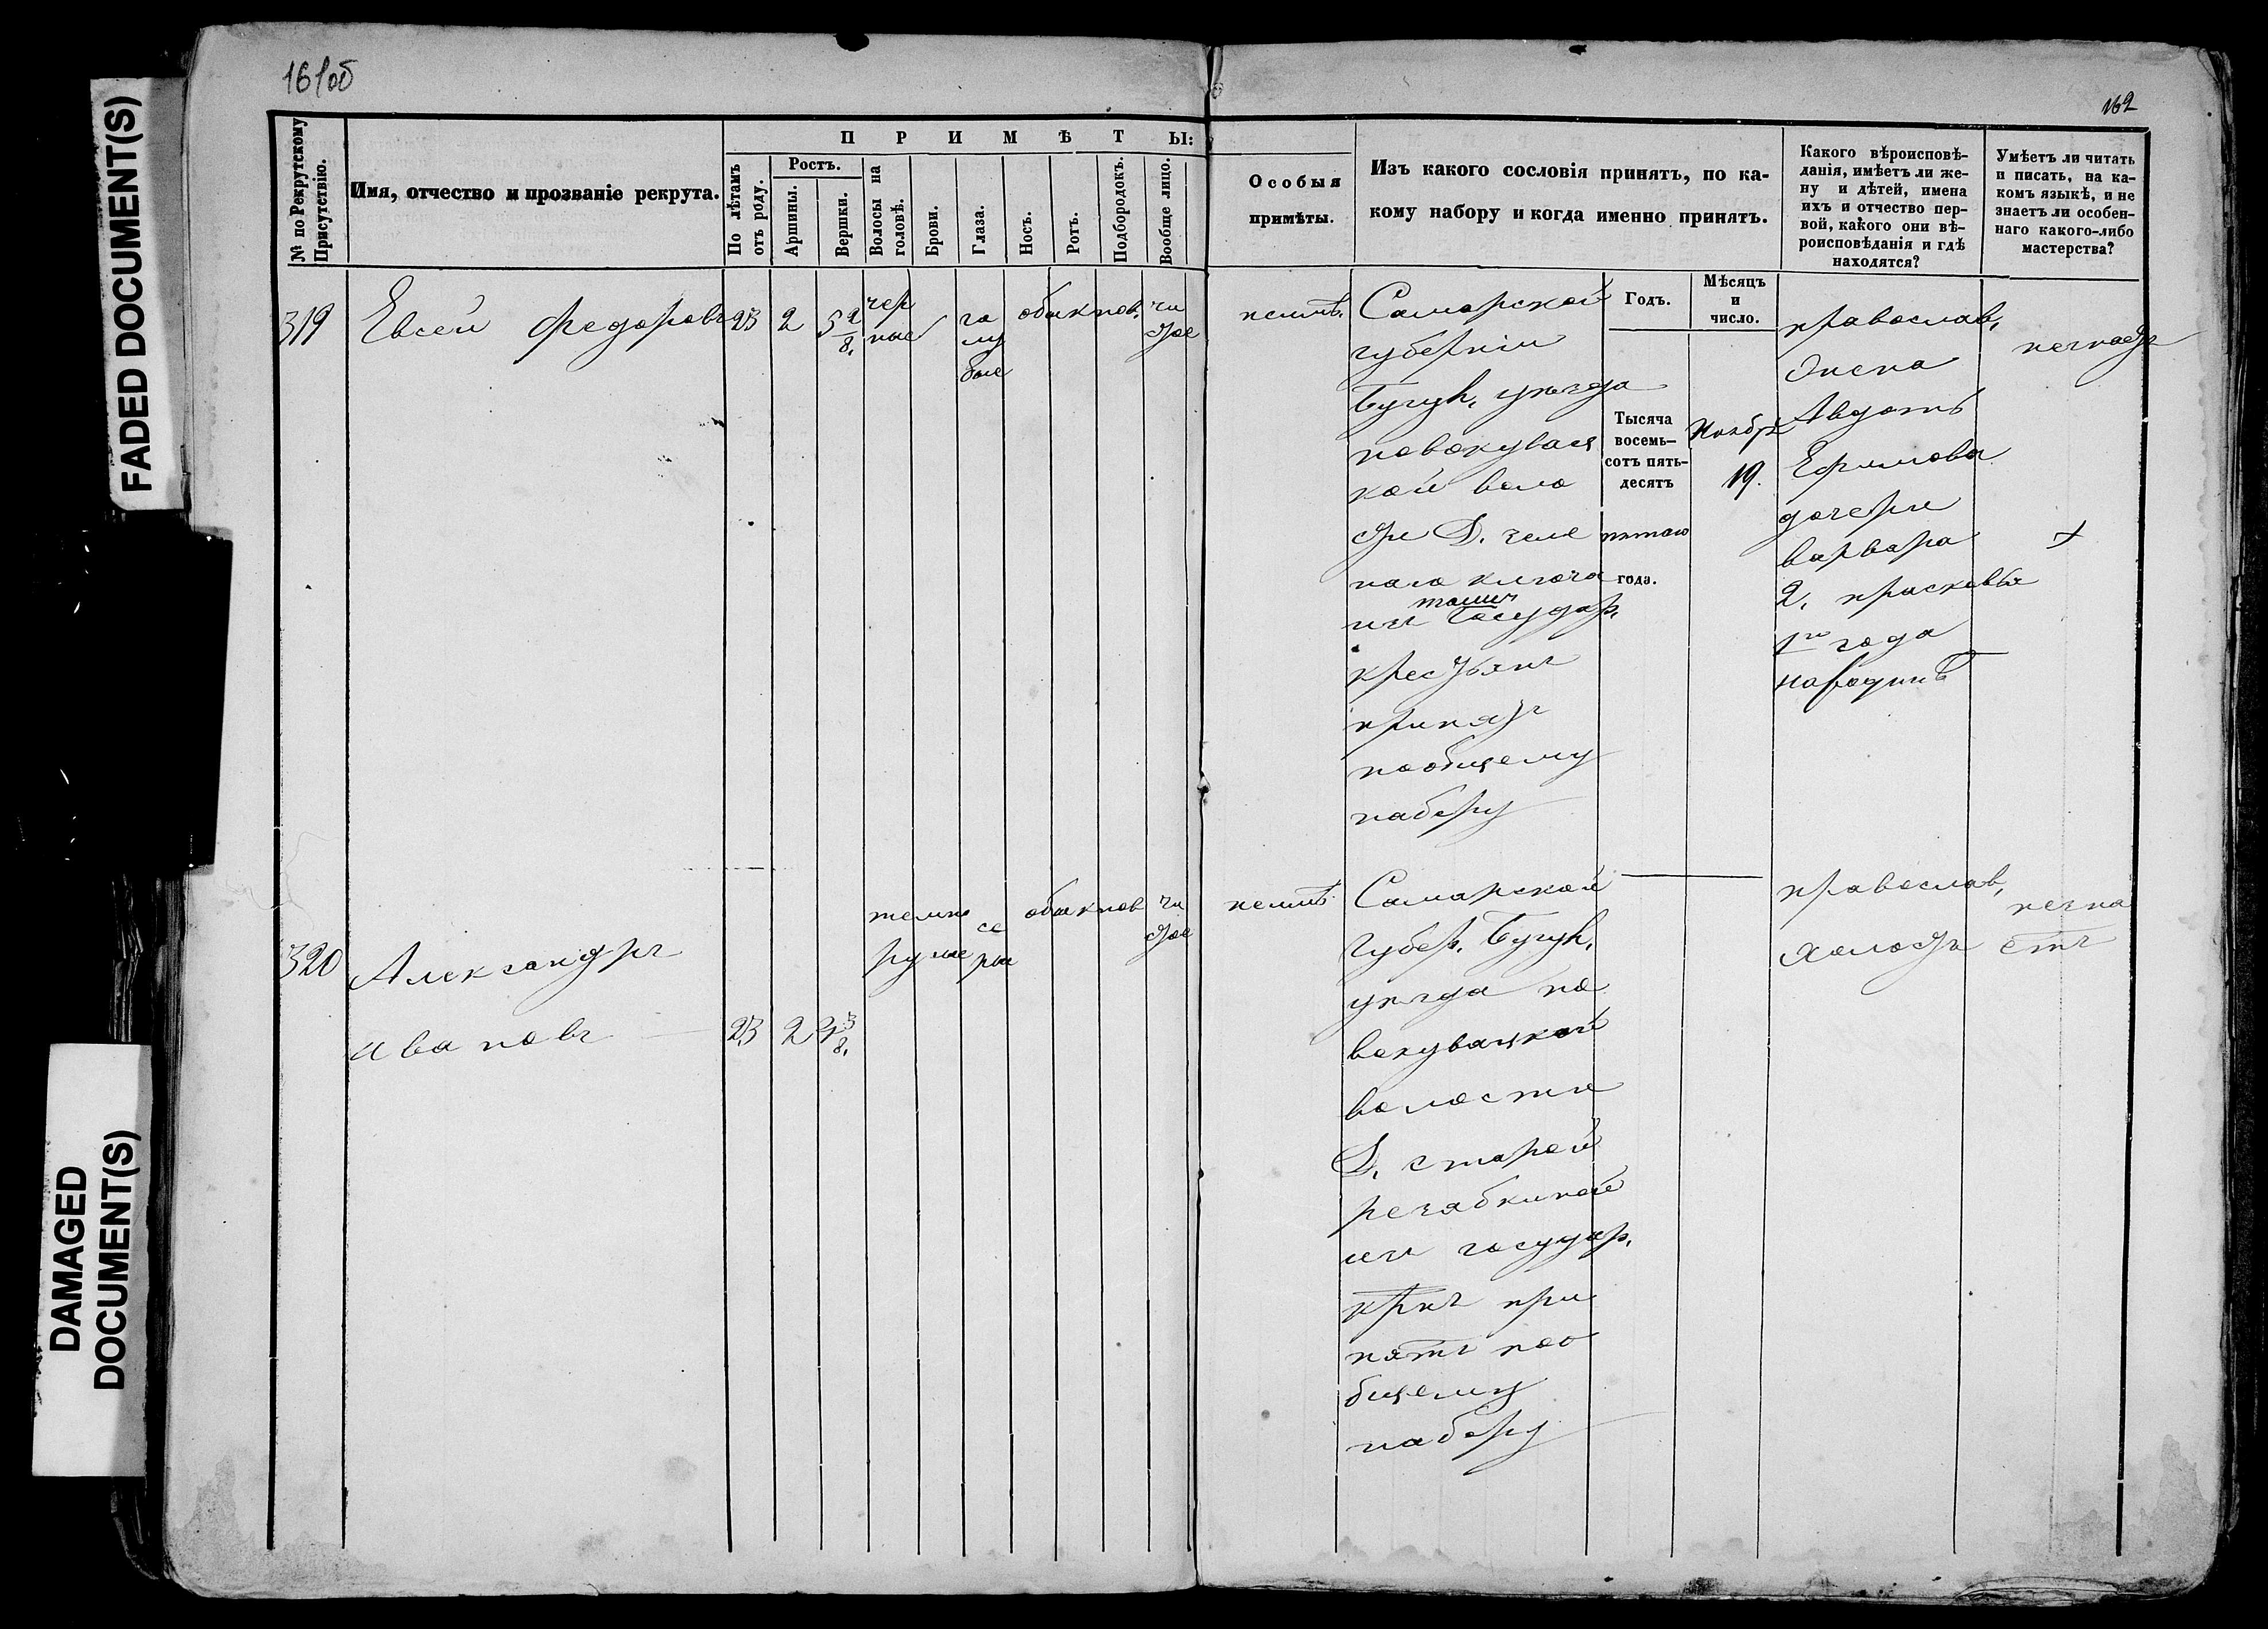 FADED DOCUMENT(S)
DAMAGED
DOCUMENT(S)
161об
162
№ по Рекрутскому
Присутствію.
Имя, отчество и прозваніе рекрута.
ПРИМѢТЫ:
По лѣтамъ
отъ роду.
Ростъ.
Аршины.
Вершки.
Волосы на
головѣ.
Брови.
Глаза.
Носъ.
Ротъ.
Подбородокъ.
Вообще лицо.
Особыя
примѣты.
Изъ какого сословія принятъ, по ка-
кому набору и когда именно принятъ.
Какого вѣроисповѣ-
данія, имѣетъ ли же-
ну и дѣтей, имена
ихъ и отчество пер-
вой, какого они вѣ-
роисповѣданія и гдѣ
находятся?
Умѣетъ ли читать
и писать, на ка-
комъ языкѣ, и не
знаетъ ли особен-
наго какого-либо
мастерства?
Годъ.
Мѣсяцъ
и
число.
319
Евсей Федоровъ
23
2
5 2/8.
чер
ные
го
лу
бые
обыкнов.
чи
стое
неимѣ.
Самарской
губерніи
Бугул. уѣзда
новокувац
кой воло
сти Д.
наго ключа
изъ Государ.
крестьянъ
принятъ
пообщему
набору
Тысяча
восемь-
сотъ пять-
десятъ
пятаго
года.
Ноябр.
19.
православ,
жена
Авдотья
Ефимова
дочери
варвара
2, прасковья
1го года
народинѣ
незнаетъ
+
320
Александръ
Ивановъ
23
2
3/8.
темно
русые
се
рые
обыкнов
чи
стое
неимѣ.
Самарской
губер. Бугул.
уѣзда но
вокувацкой
волости
Д. старой
резабкиной
изъ государ.
крнъ при
нятъ поо
бщему
набору
православ,
холостъ
незна
етъ